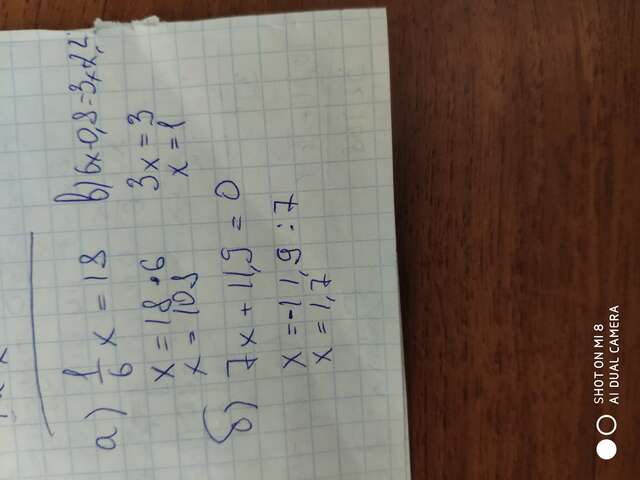 а) 1/6 x = 18
x = 18 · 6
x = 108
б) 7x + 11,9 = 0
x = -11,9 : 7
x = 1,7
в) 6x-0,8=3x+2,2
3x = 3
x = 1
SHOT ON MI 8
AI DUAL CAMERA